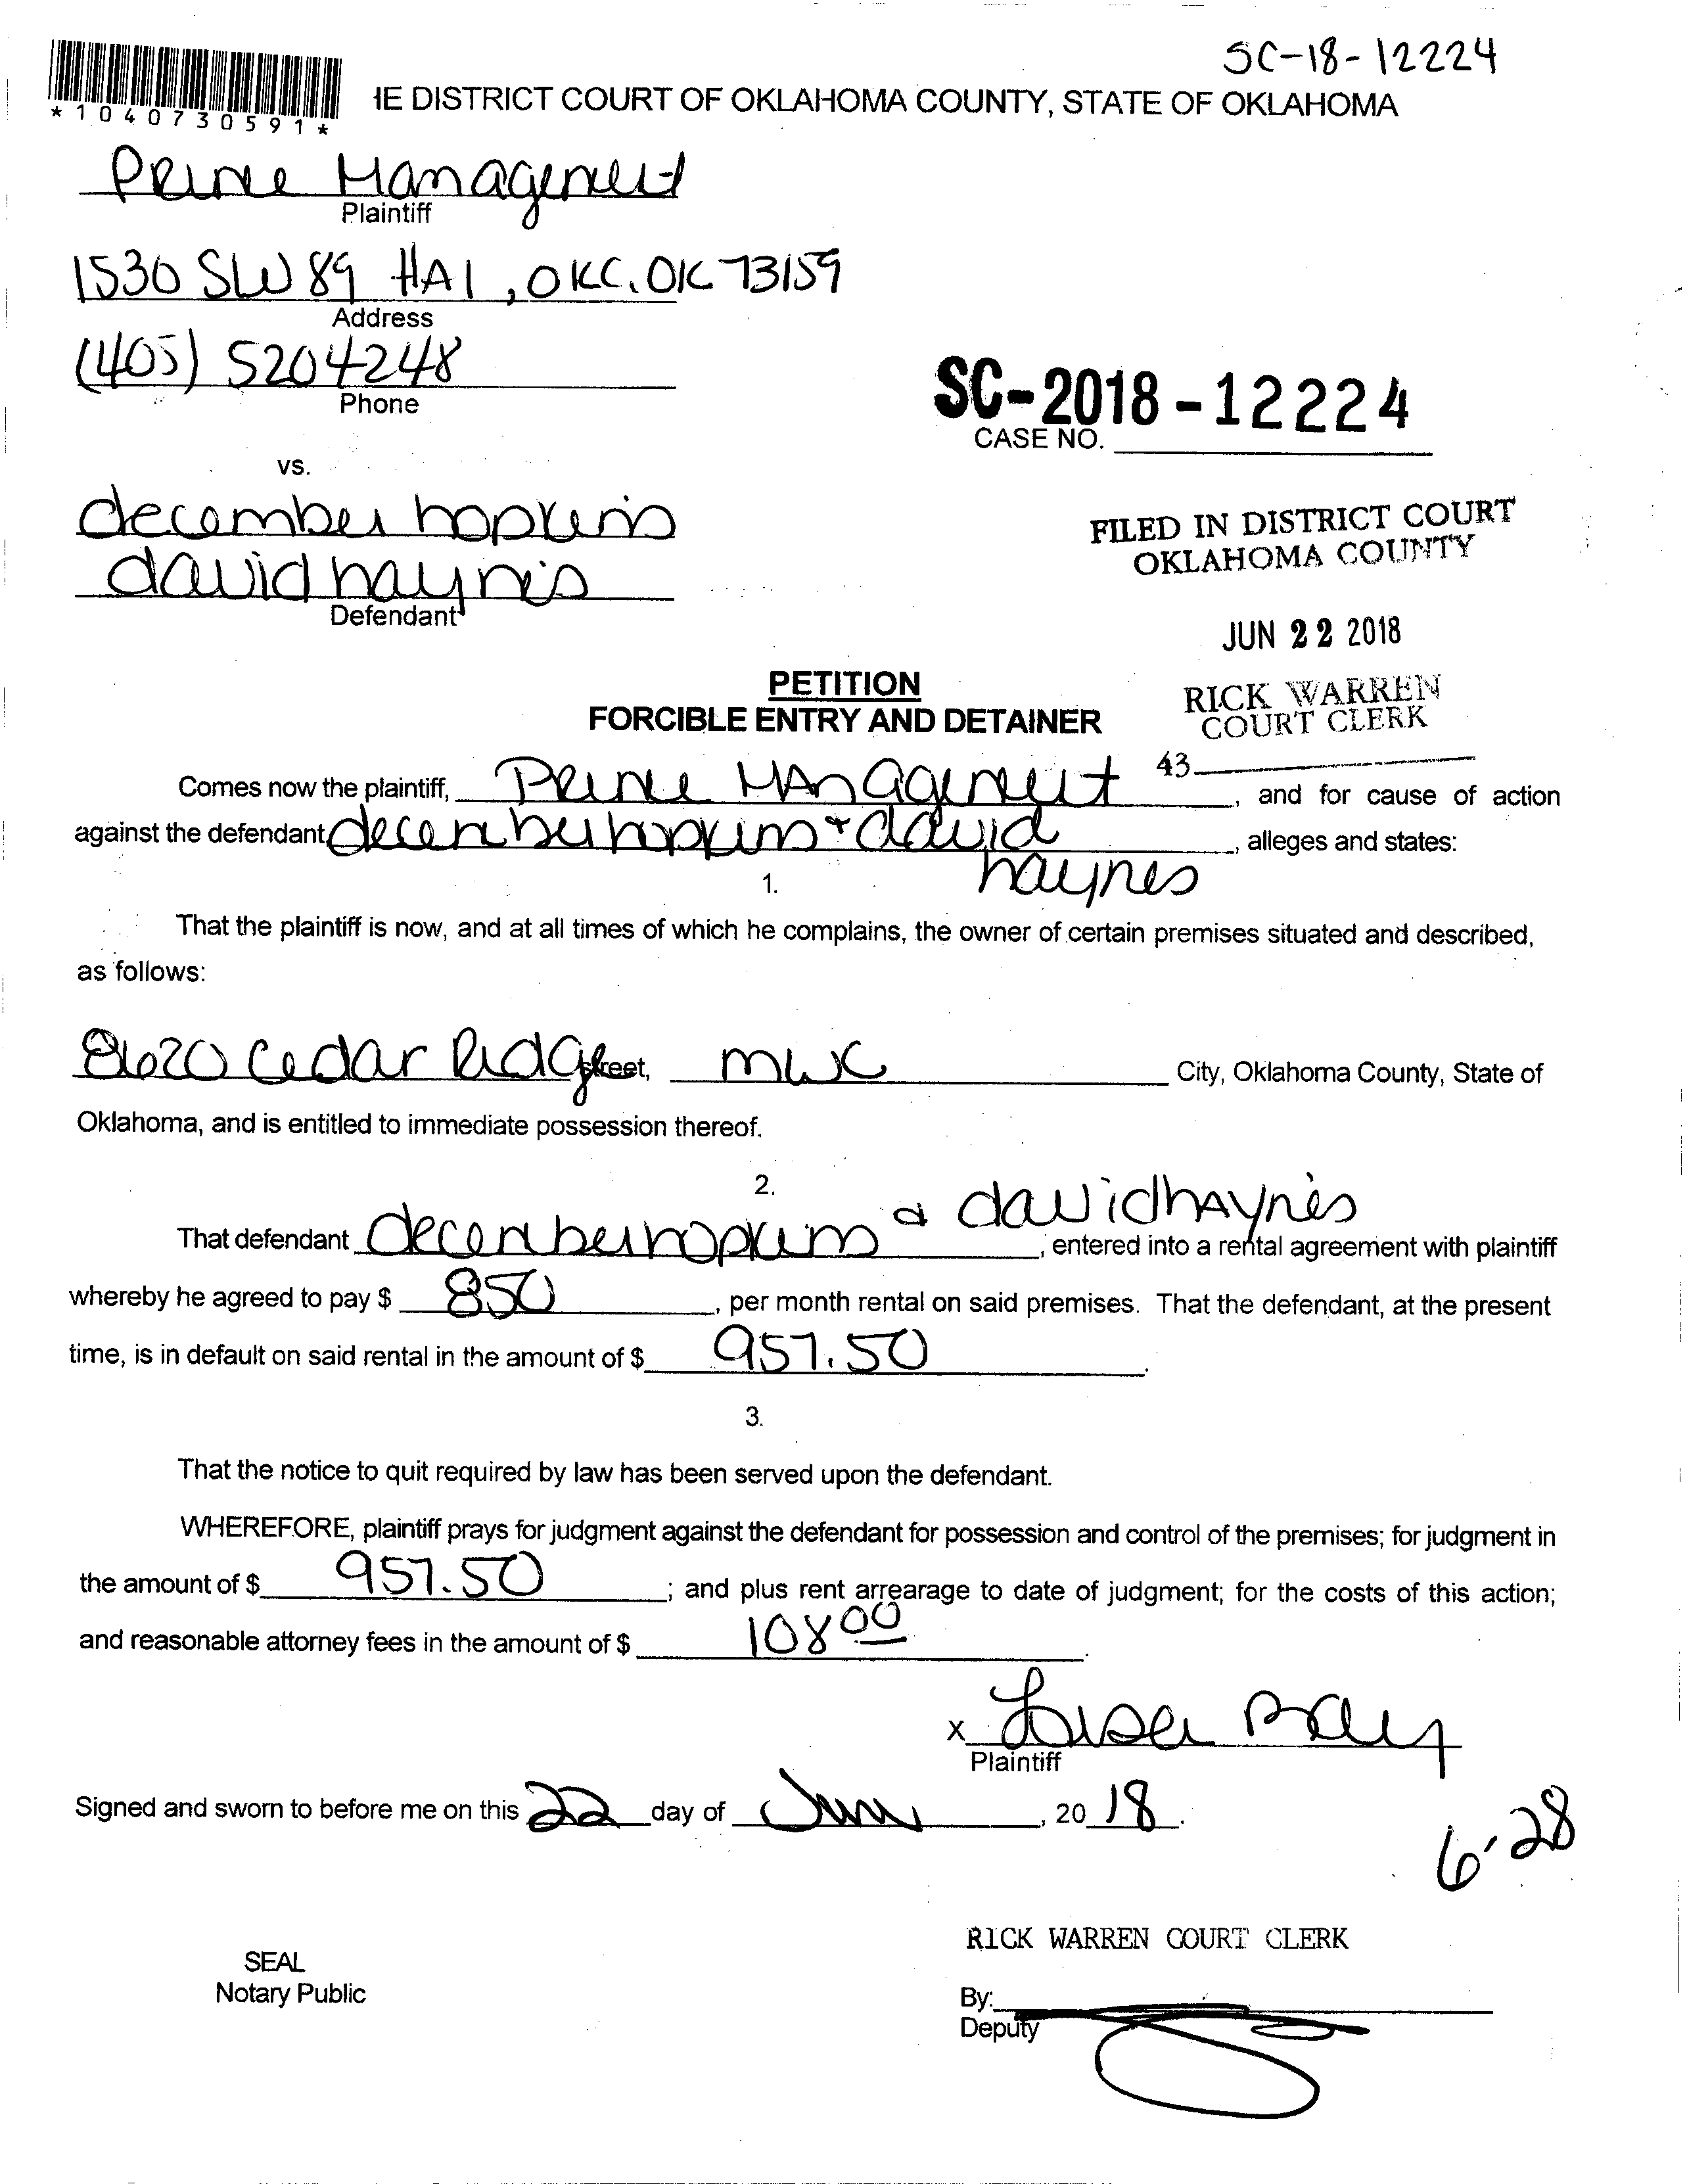 SC-18-12224
*1040730591*
IE DISTRICT COURT OF OKLAHOMA COUNTY, STATE OF OKLAHOMA
Prince Management
Plaintiff
1530 SW 89 #A1, OKC. OK 73159
Address
(405) 5204248
Phone
SC-2018-12224
CASE NO.
vs.
december hopkins
david haynes
Defendant
FILED IN DISTRICT COURT
OKLAHOMA COUNTY
JUN 22 2018
RICK WARREN
COURT CLERK
43
PETITION
FORCIBLE ENTRY AND DETAINER
Comes now the plaintiff, Prince Management, and for cause of action
against the defendant december hopkins + david haynes, alleges and states:
1.
That the plaintiff is now, and at all times of which he complains, the owner of certain premises situated and described,
as follows:
8620 Cedar Ridge street, MWC City, Oklahoma County, State of
Oklahoma, and is entitled to immediate possession thereof.
2.
That defendant december hopkins & david haynes, entered into a rental agreement with plaintiff
whereby he agreed to pay $ 850, per month rental on said premises. That the defendant, at the present
time, is in default on said rental in the amount of $ 957.50.
3.
That the notice to quit required by law has been served upon the defendant.
WHEREFORE, plaintiff prays for judgment against the defendant for possession and control of the premises; for judgment in
the amount of $ 957.50; and plus rent arrearage to date of judgment; for the costs of this action;
and reasonable attorney fees in the amount of $ 108 00.
x Lisa Ray
Plaintiff
Signed and sworn to before me on this 22 day of June, 20 18.
6-28
RICK WARREN COURT CLERK
SEAL
Notary Public
By:
Deputy